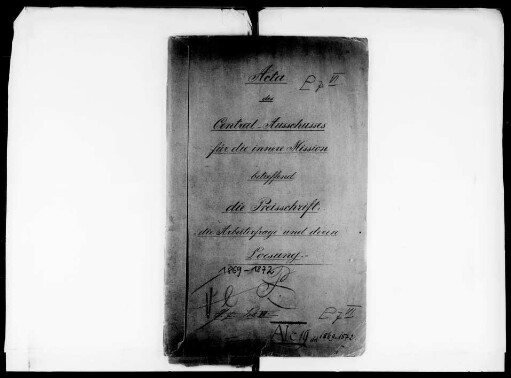 Acta
E 7 VI
des
Central-Ausschusses
für die innere Mission
betreffend
die Preisschrift:
die Arbeiterfrage und deren
Loesung.
1869-1872
E 7 VI
1869-1872